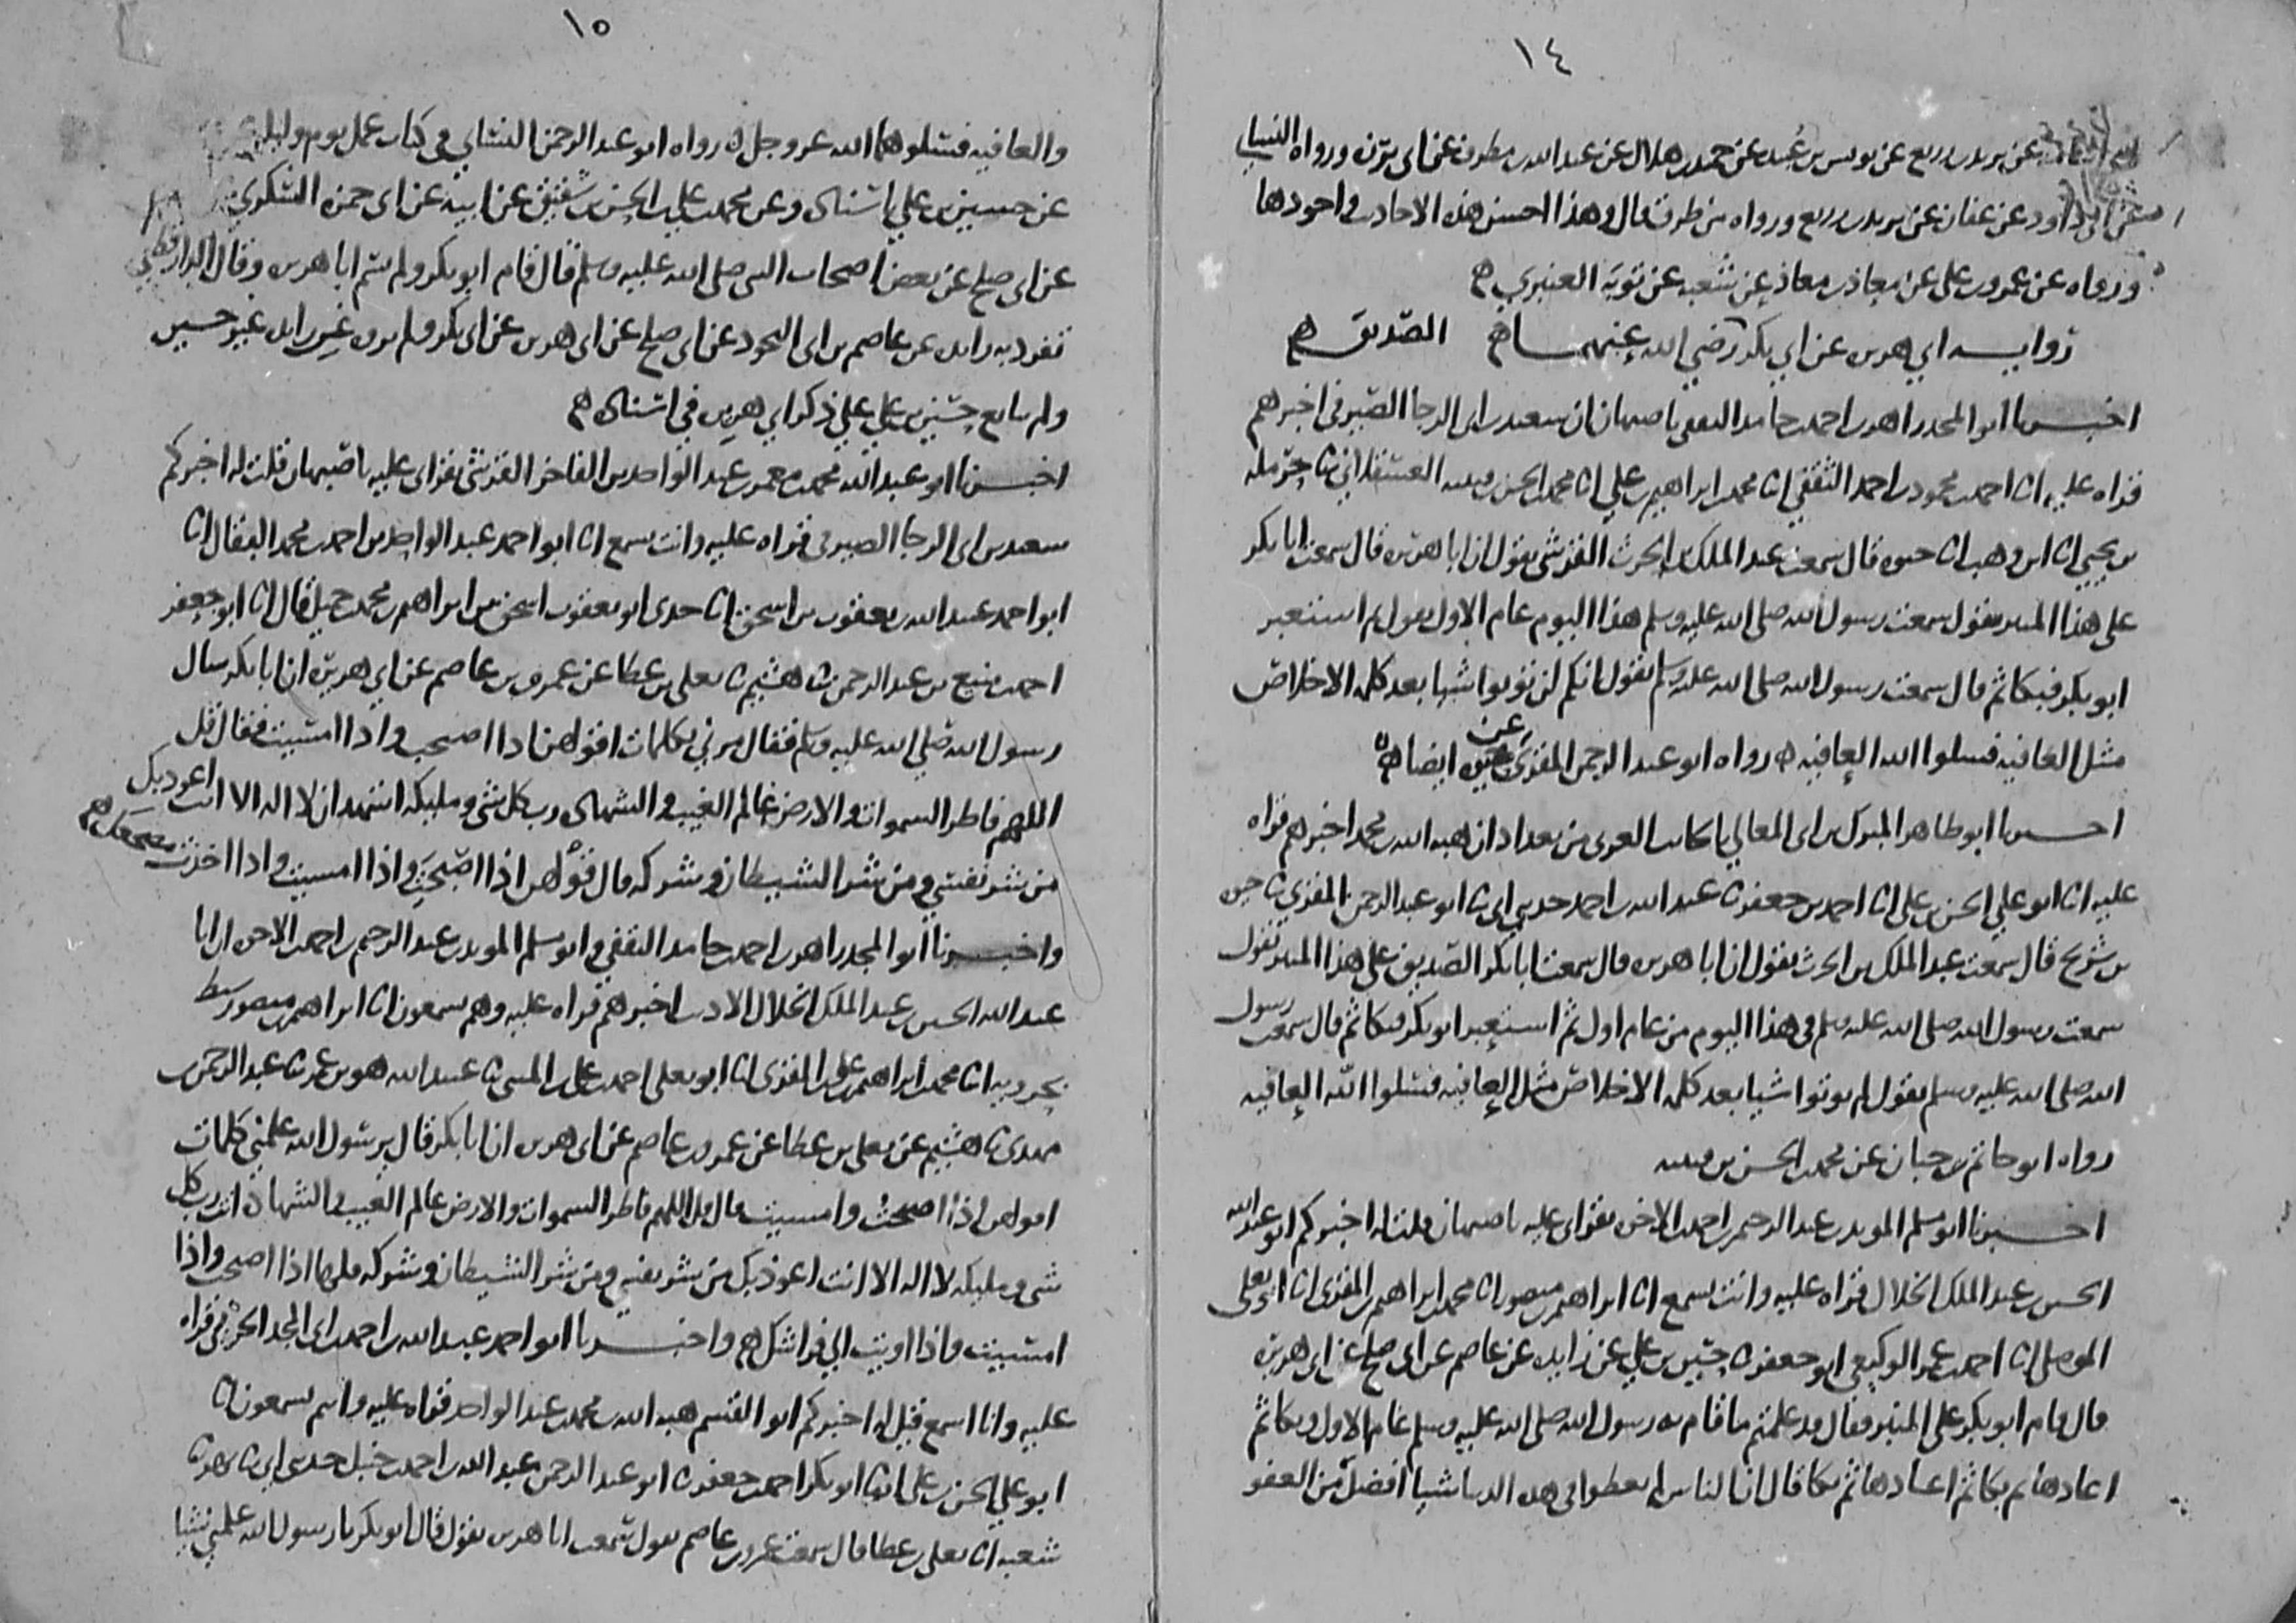 ١٤
عن يزيد بن زريع عن يونس بن عبيد عن حميد بن هلال عن عبد الله بن مطرف عن ابي برزة ورواه النسائي
عن ابي داود عن عفان عن يزيد بن زريع ورواه من طرق قال وهذا احسن هذه الاحاديث واجودها
ورواه عن عمرو بن علي عن معاذ بن معاذ عن شعبه عن توبة العنبري
رواية ابي هريرة عن ابي بكر الصديق رضي الله عنهما
اخبرنا ابو المجد زاهر بن احمد بن حامد الثقفي باصبهان ان سعيد بن ابي الرجا الصيرفي اخبرهم
قراه عليه انا احمد بن محمود بن احمد الثقفي انا محمد بن ابراهيم بن علي انا محمد بن الحسن بن قتيبه العسقلاني ثنا حرمله
بن يحيى انا ابن وهب انا حيوه قال سمعت عبد الملك بن الحرث القرشي يقول ان ابا هريرة قال سمعت ابا بكر
على هذا المنبر يقول سمعت رسول الله صلى الله عليه وسلم هذا اليوم عام الاول يقول ثم استعبر
ابو بكر فبكا ثم قال سمعت رسول الله صلى الله عليه وسلم يقول انكم لن توتوا شيا بعد كلمة الاخلاص
مثل العافيه فسلوا الله العافيه رواه ابو عبد الرحمن المقرئ عن حيوه ايضا
اخبرنا ابو طاهر المبرك بن ابي المعالي ببغداد ان هبه الله بن محمد اخبرهم قراه
عليه انا ابو علي الحسن بن علي انا احمد بن جعفر ثنا عبد الله بن احمد حدثني ابي ثنا ابو عبد الرحمن المقرئ ثنا حيوه
بن شريح قال سمعت عبد الملك بن الحرث يقول ان ابا هريره قال سمعت ابا بكر الصديق على هذا المنبر يقول
سمعت رسول الله صلى الله عليه وسلم في هذا اليوم من عام اول ثم استعبر ابو بكر فبكا ثم قال سمعت رسول
الله صلى الله عليه وسلم يقول لم توتوا شيا بعد كلمة الاخلاص مثل العافيه فسلوا الله العافيه
رواه ابو حاتم بن حبان عن محمد بن الحسن بن قتيبه
اخبرنا ابو مسلم المويد بن عبد الرحيم بن احمد بن الاخوه بقراتي عليه باصبهان قلت له اخبركم ابو عبد الله
الحسين بن عبد الملك الخلال قراه عليه وانت تسمع انا ابراهيم بن منصور انا محمد بن ابراهيم بن المقرئ انا ابو يعلى
الموصلي ثنا احمد بن عمر الوكيعي ابو جعفر ثنا حسين بن علي عن زايده عن عاصم عن ابي صلح عن ابي هريرة
قال قام ابو بكر على المنبر فقال قد علمتم ما قام به رسول الله صلى الله عليه وسلم عام الاول وبكا ثم
اعادها ثم بكا ثم اعادها ثم بكا قال ان الناس لم يعطوا في هذه الدنيا شيا افضل من العفو
١٥
والعافيه فسلوهما الله عز وجل رواه ابو عبد الرحمن النسائي في كتاب عمل يوم وليله
عن حسين بن علي باسناده وعن محمد بن علي بن الحسن بن شقيق عن ابيه عن ابي حمزه السكري
عن ابي صلح عن بعض اصحاب النبي صلى الله عليه وسلم قال قام ابو بكر ولم يسم ابا هريره وقال الدارقطني
تفرد به زايده عن عاصم بن ابي النجود عن ابي صلح عن ابي هريره عن ابي بكر ولم يروه عن زايده غير حسين
ولم يتابع حسين بن علي على ذكر ابي هريره في اسناده
اخبرنا ابو عبد الله محمد بن معمر بن عبد الواحد بن الفاخر القرشي بقراتي عليه باصبهان قلت له اخبركم
سعيد بن ابي الرجا الصيرفي قراه عليه وانت تسمع انا ابو احمد عبد الواحد بن احمد بن محمد البقال انا
ابو احمد عبيد الله بن يعقوب بن اسحق انا جدي ابو يعقوب اسحق بن ابراهيم بن محمد بن جميل قال انا ابو جعفر
احمد بن منيع بن عبد الرحمن ثنا هشيم ثنا يعلى بن عطا عن عمرو بن عاصم عن ابي هريرة ان ابا بكر سال
رسول الله صلى الله عليه وسلم فقال مرني بكلمات اقولهن اذا اصبحت واذا امسيت فقال قل
اللهم فاطر السموات والارض عالم الغيب والشهاده رب كل شي ومليكه اشهد ان لا اله الا انت اعوذ بك
من شر نفسي ومن شر الشيطان وشركه قال قولهن اذا اصبحت واذا امسيت واذا اخذت مضجعك
واخبرنا ابو المجد زاهر بن احمد بن حامد الثقفي وابو مسلم المويد بن عبد الرحيم بن احمد بن الاخوه ان ابا
عبد الله الحسين بن عبد الملك الخلال الاديب اخبرهم قراه عليه وهم يسمعون انا ابراهيم بن منصور سبط
بحرويه انا محمد بن ابراهيم بن علي بن المقرئ انا ابو يعلى احمد بن علي بن المثنى ثنا عبيد الله هو بن عمر ثنا عبد الرحمن بن
مهدي ثنا هشيم عن يعلى بن عطا عن عمرو بن عاصم عن ابي هريره ان ابا بكر قال يرسول الله علمني كلمات
اقولهن اذا اصبحت وامسيت قال قل اللهم فاطر السموات والارض عالم الغيب والشهادة انت رب كل
شي ومليكه لا اله الا انت اعوذ بك من شر نفسي ومن شر الشيطان وشركه قلها اذا اصبحت واذا
امسيت واذا اويت الى فراشك واخبرنا ابو احمد عبد الله بن احمد بن ابي المجد الحربي قراه
عليه وانا اسمع قيل له اخبركم ابو القسم هبه الله بن محمد بن عبد الواحد قراه عليه وانتم تسمعون انا
ابو علي الحسن بن علي انبا ابو بكر احمد بن جعفر ثنا ابو عبد الرحمن عبد الله بن احمد بن حنبل حدثني ابي ثنا بهز ثنا
شعبه انا يعلى بن عطا قال سمعت عمرو بن عاصم يقول سمعت ابا هريره يقول قال ابو بكر يا رسول الله علمني شيا